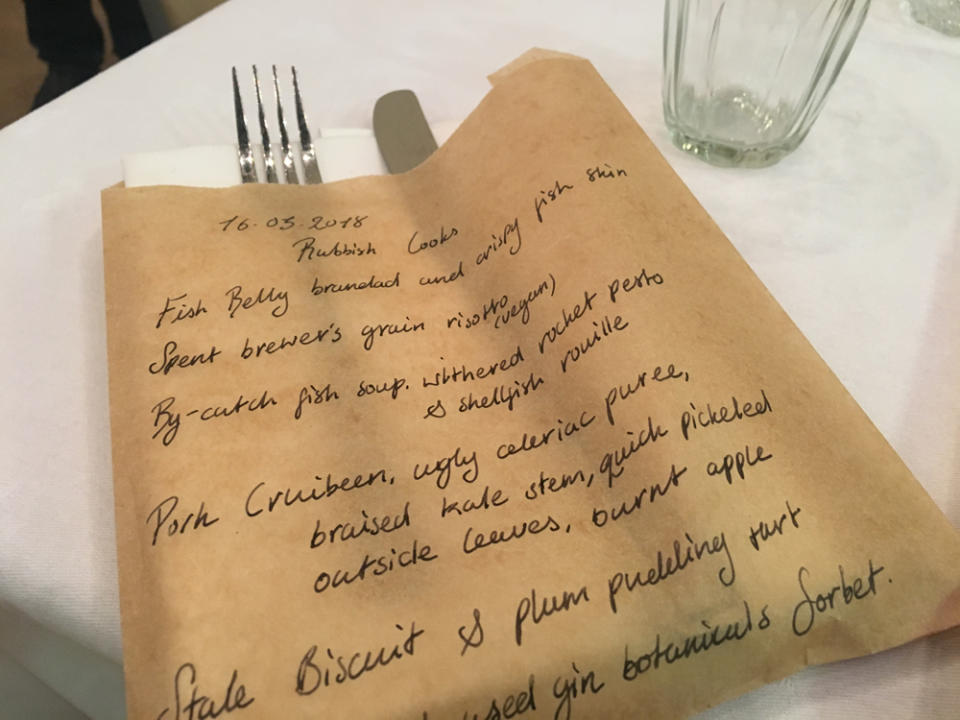 16.03.2018
Rubbish Cooks
Fish Belly brandad and crispy fish skin
Spent brewer's grain risotto
(vegan)
By-catch fish soup. withered rochet pesto
& shellfish rouille
Pork Cruibeen, ugly celeriac puree,
braised kale stem, quick pickeled
outside leeves, burnt apple
Stale Biscuit & plum pudding tart
gin botanicals Sorbet.